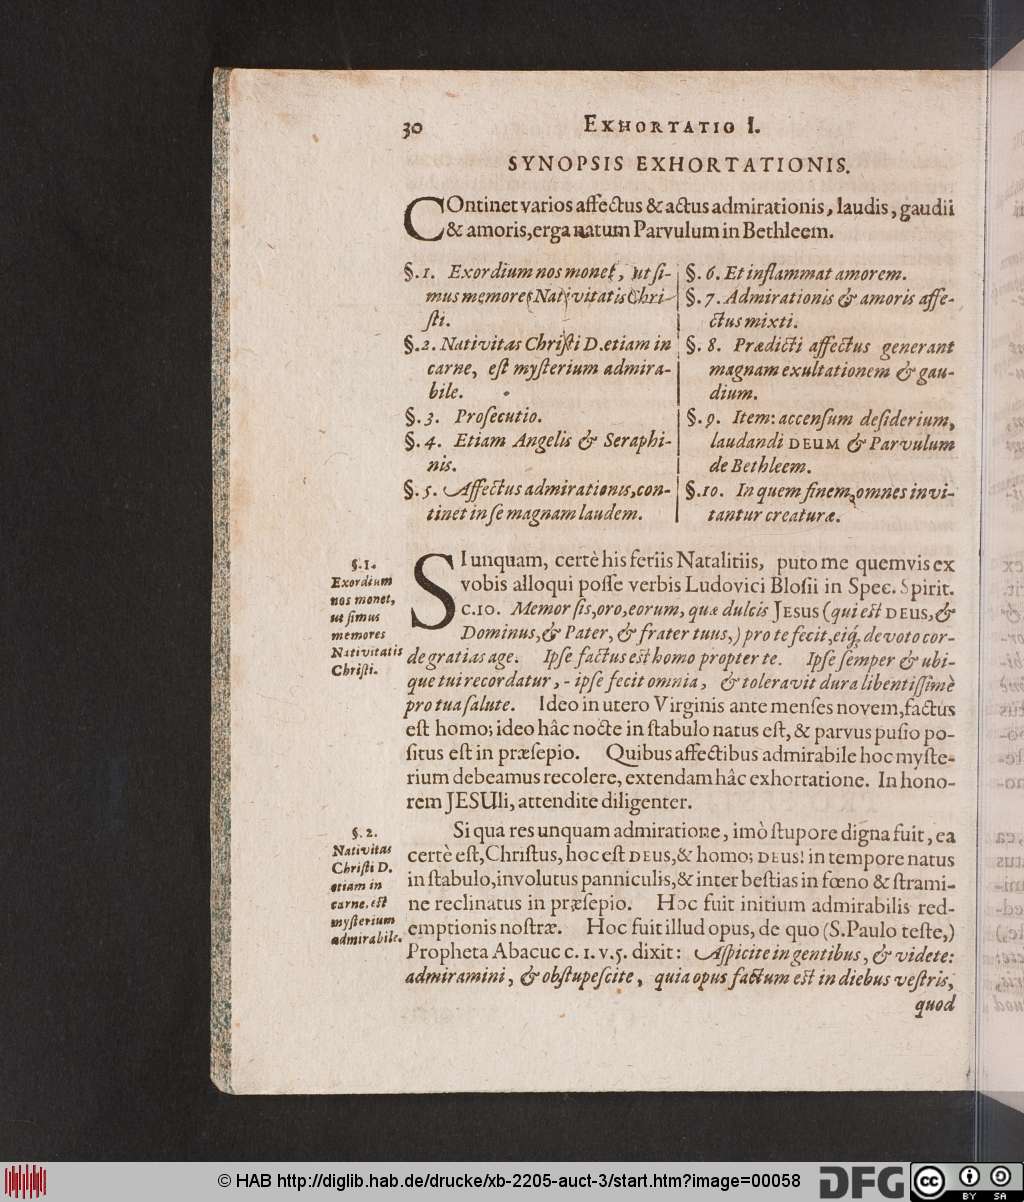 30 EXHORTATIO I.
SYNOPSIS EXHORTATIONIS.
COntinet varios affectus & actus admirationis, laudis, gaudii
& amoris, erga natum Parvulum in Bethleem.
§. 1. Exordium nos monet, ut si-
mus memores Nativitatis Chri-
sti.
§. 2. Nativitas Christi D. etiam in
carne, est mysterium admira-
bile.
§. 3. Prosecutio.
§. 4. Etiam Angelis & Seraphi-
nis.
§. 5. Affectus admirationis, con-
tinet in se magnam laudem.
§. 6. Et inflammat amorem.
§. 7. Admirationis & amoris affe-
ctus mixti.
§. 8. Prædicti affectus generant
magnam exultationem & gau-
dium.
§. 9. Item: accensum desiderium,
laudandi DEUM & Parvulum
de Bethleem.
§. 10. In quem finem, omnes invi-
tantur creaturæ.
§. 1.
Exordium
nos monet,
ut simus
memores
Nativitatis
Christi.
SI unquam, certè his feriis Natalitiis, puto me quemvis ex
vobis alloqui posse verbis Ludovici Blosii in Spec. Spirit.
c. 10. Memor sis, oro, eorum, quæ dulcis JESUS (qui est DEUS, &
Dominus, & Pater, & frater tuus,) pro te fecit, eiq́; devoto cor-
de gratias age. Ipse factus est homo propter te. Ipse semper & ubi-
que tui recordatur, - ipse fecit omnia, & toleravit dura libentissimè
pro tua salute. Ideo in utero Virginis ante menses novem, factus
est homo; ideo hâc nocte in stabulo natus est, & parvus pusio po-
situs est in præsepio. Quibus affectibus admirabile hoc myste-
rium debeamus recolere, extendam hâc exhortatione. In hono-
rem JESUli, attendite diligenter.
§. 2.
Nativitas
Christi D.
etiam in
carne, est
mysterium
admirabile.
Si qua res unquam admiratione, imò stupore digna fuit, ea
certè est, Christus, hoc est DEUS, & homo; DEUS! in tempore natus
in stabulo, involutus panniculis, & inter bestias in fœno & strami-
ne reclinatus in præsepio. Hoc fuit initium admirabilis red-
emptionis nostræ. Hoc fuit illud opus, de quo (S. Paulo teste,)
Propheta Abacuc c. 1. v. 5. dixit: Aspicite in gentibus, & videte:
admiramini, & obstupescite, quia opus factum est in diebus vestris,
quod
© HAB http://diglib.hab.de/drucke/xb-2205-auct-3/start.htm?image=00058
DFG
cc
BY SA